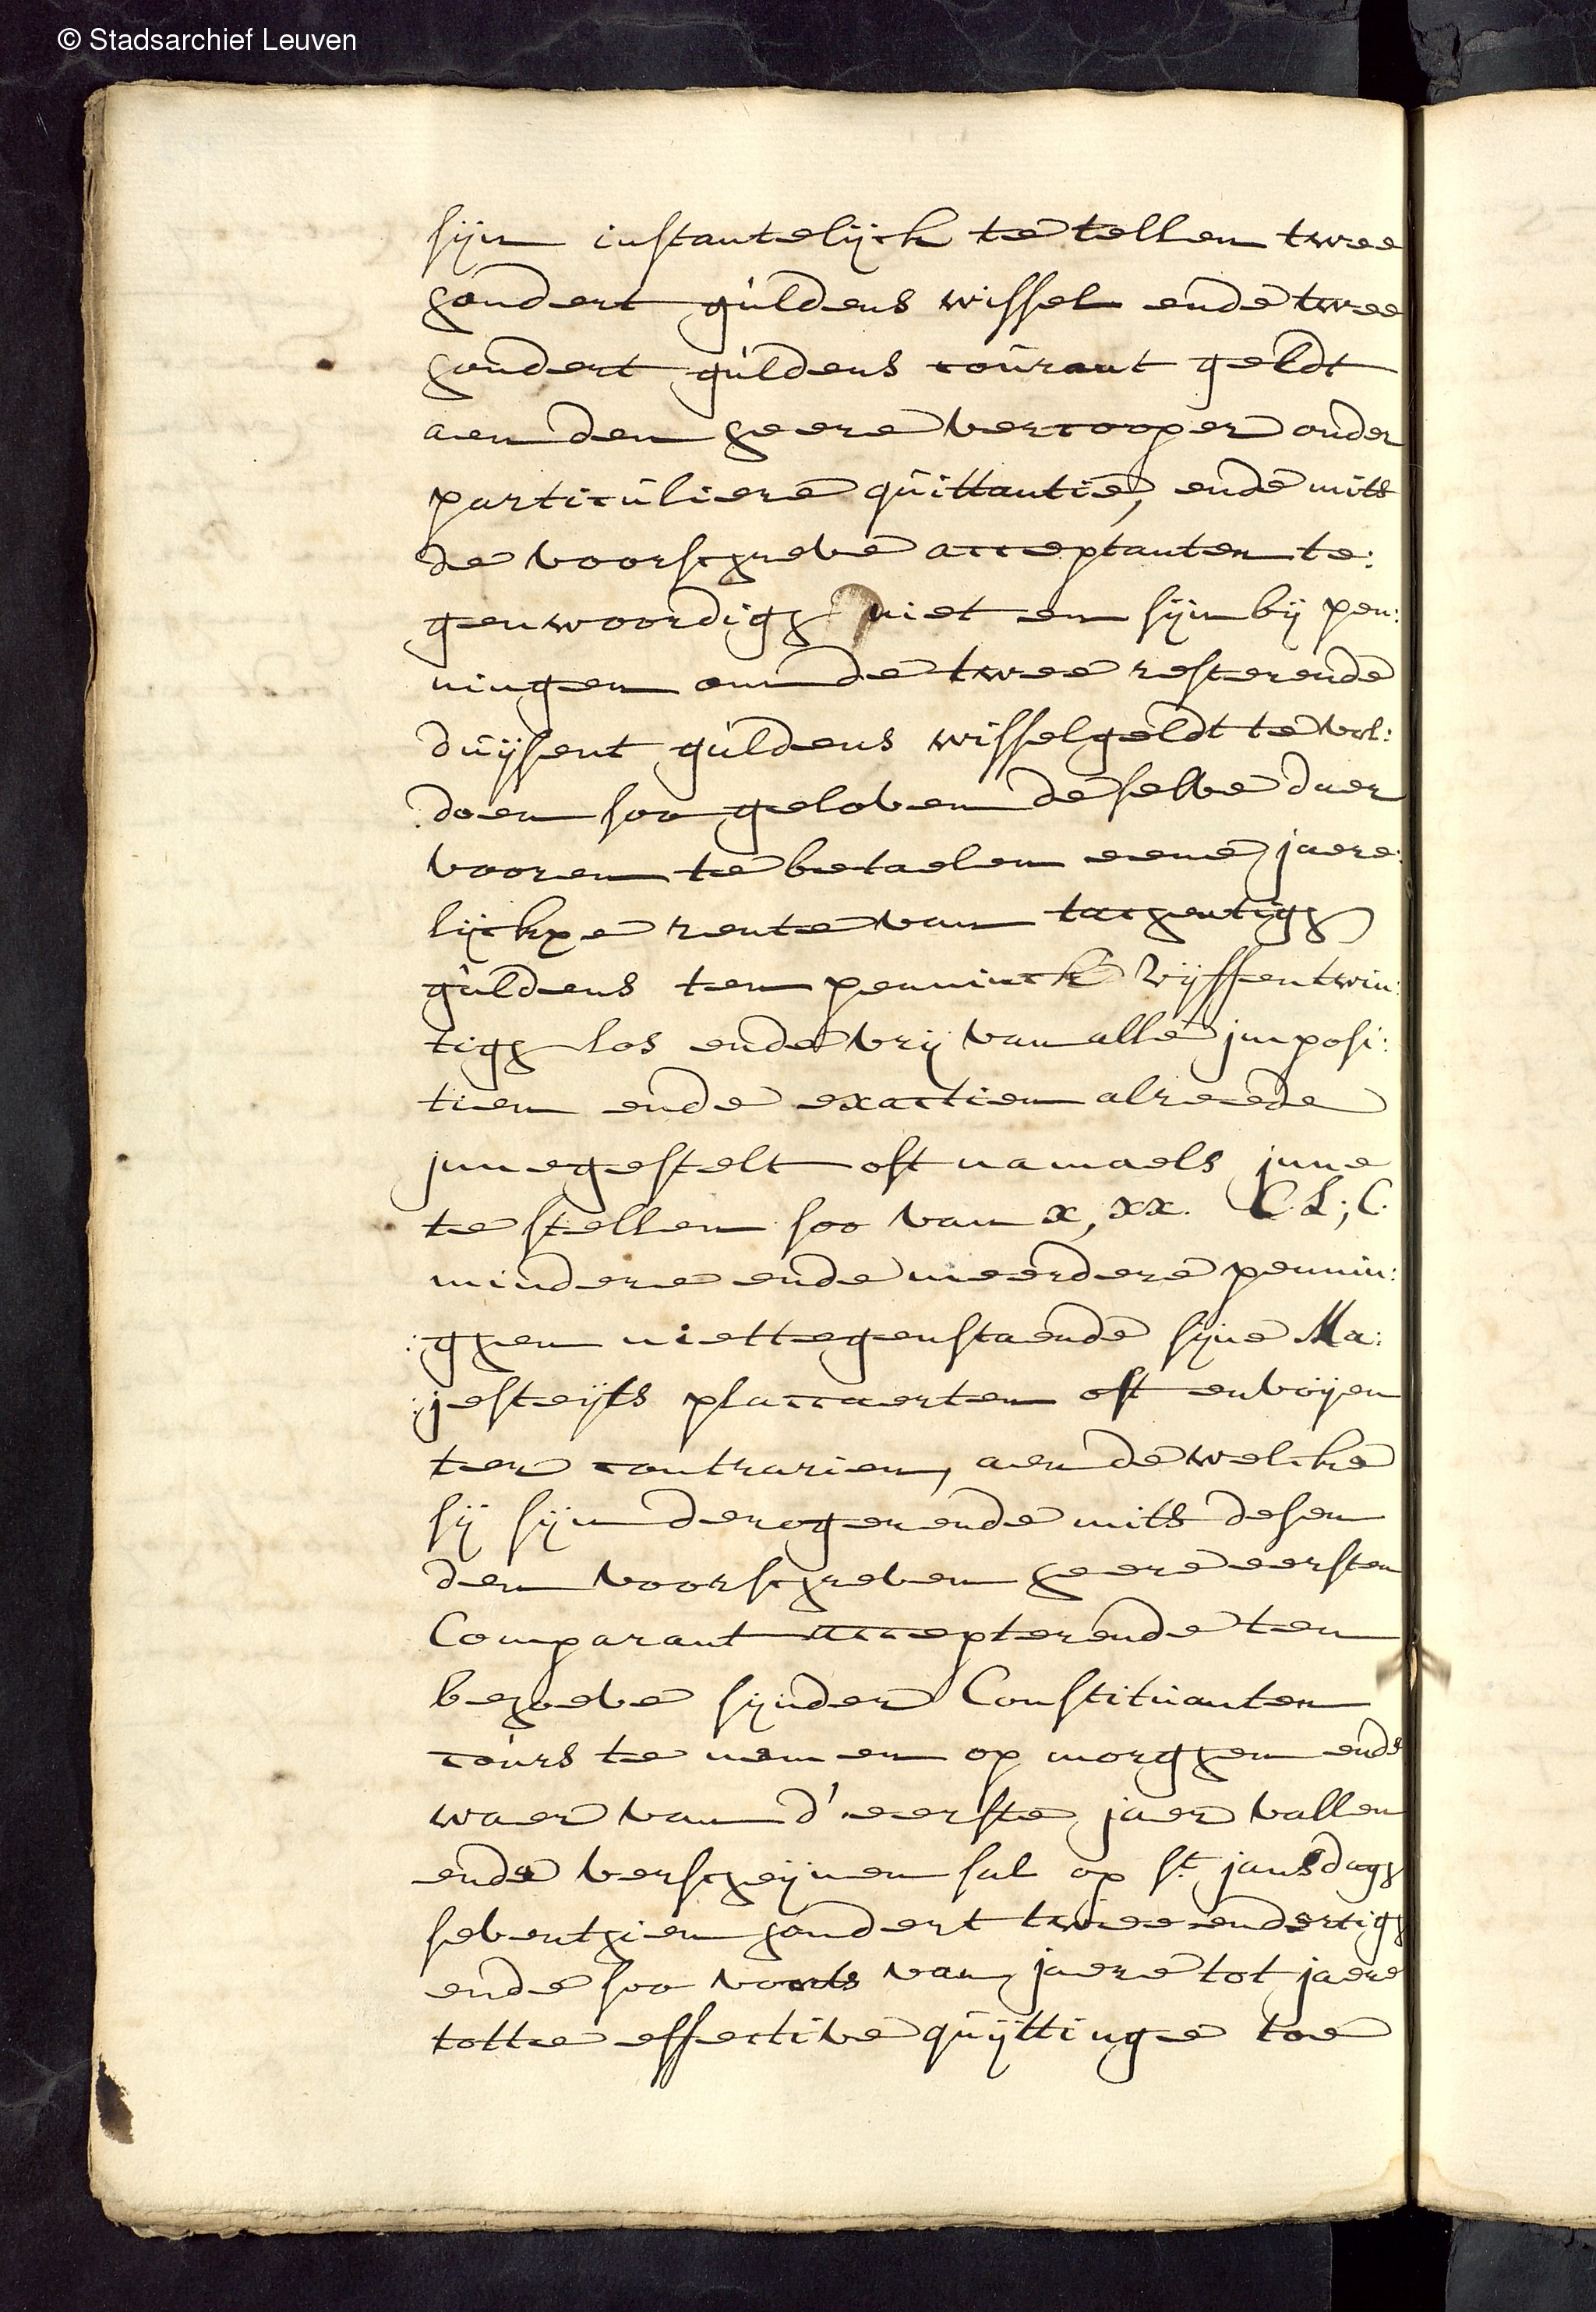 © Stadsarchief Leuven
sijn instantelijck te tellen twee
hondert guldens wissel ende twee
hondert guldens courant geldt
aen den heere vercooper onder
particuliere quittantie, ende mits
de voorschreve acceptanten te:
genwoordigh niet en sijn bij pen:
ningen om de twee resterende
duijsent guldens wisselgeldt te vol:
doen soo geloven de selve daer
vooren te betaelen eene jaere:
lijckxe rente van tachentigh
guldens ten penninck vijffentwin:
tigh los ende vrij van alle imposi:
tien ende exactien alreede
innegestelt oft namaels inne
te stellen soo van x, xx. C. L; C.
mindere ende meerdere pennin:
:ghen niettegenstaende sijne Ma:
:jesteijts placcaerten oft envoijen
ter contrarien, aen de welcke
sij sijn derogerende mits desen
den voorschreven heere eersten
Comparant accepterende ten
behoeve sijnder Constituanten
cours te nemen op morghen ende
waer van d'eerste jaer vallen
ende verscheijnen sal op st. jansdagh
seventhien hondert tweeendertigh
ende soo voorts van jaere tot jaere
totte effective quijttinge toe